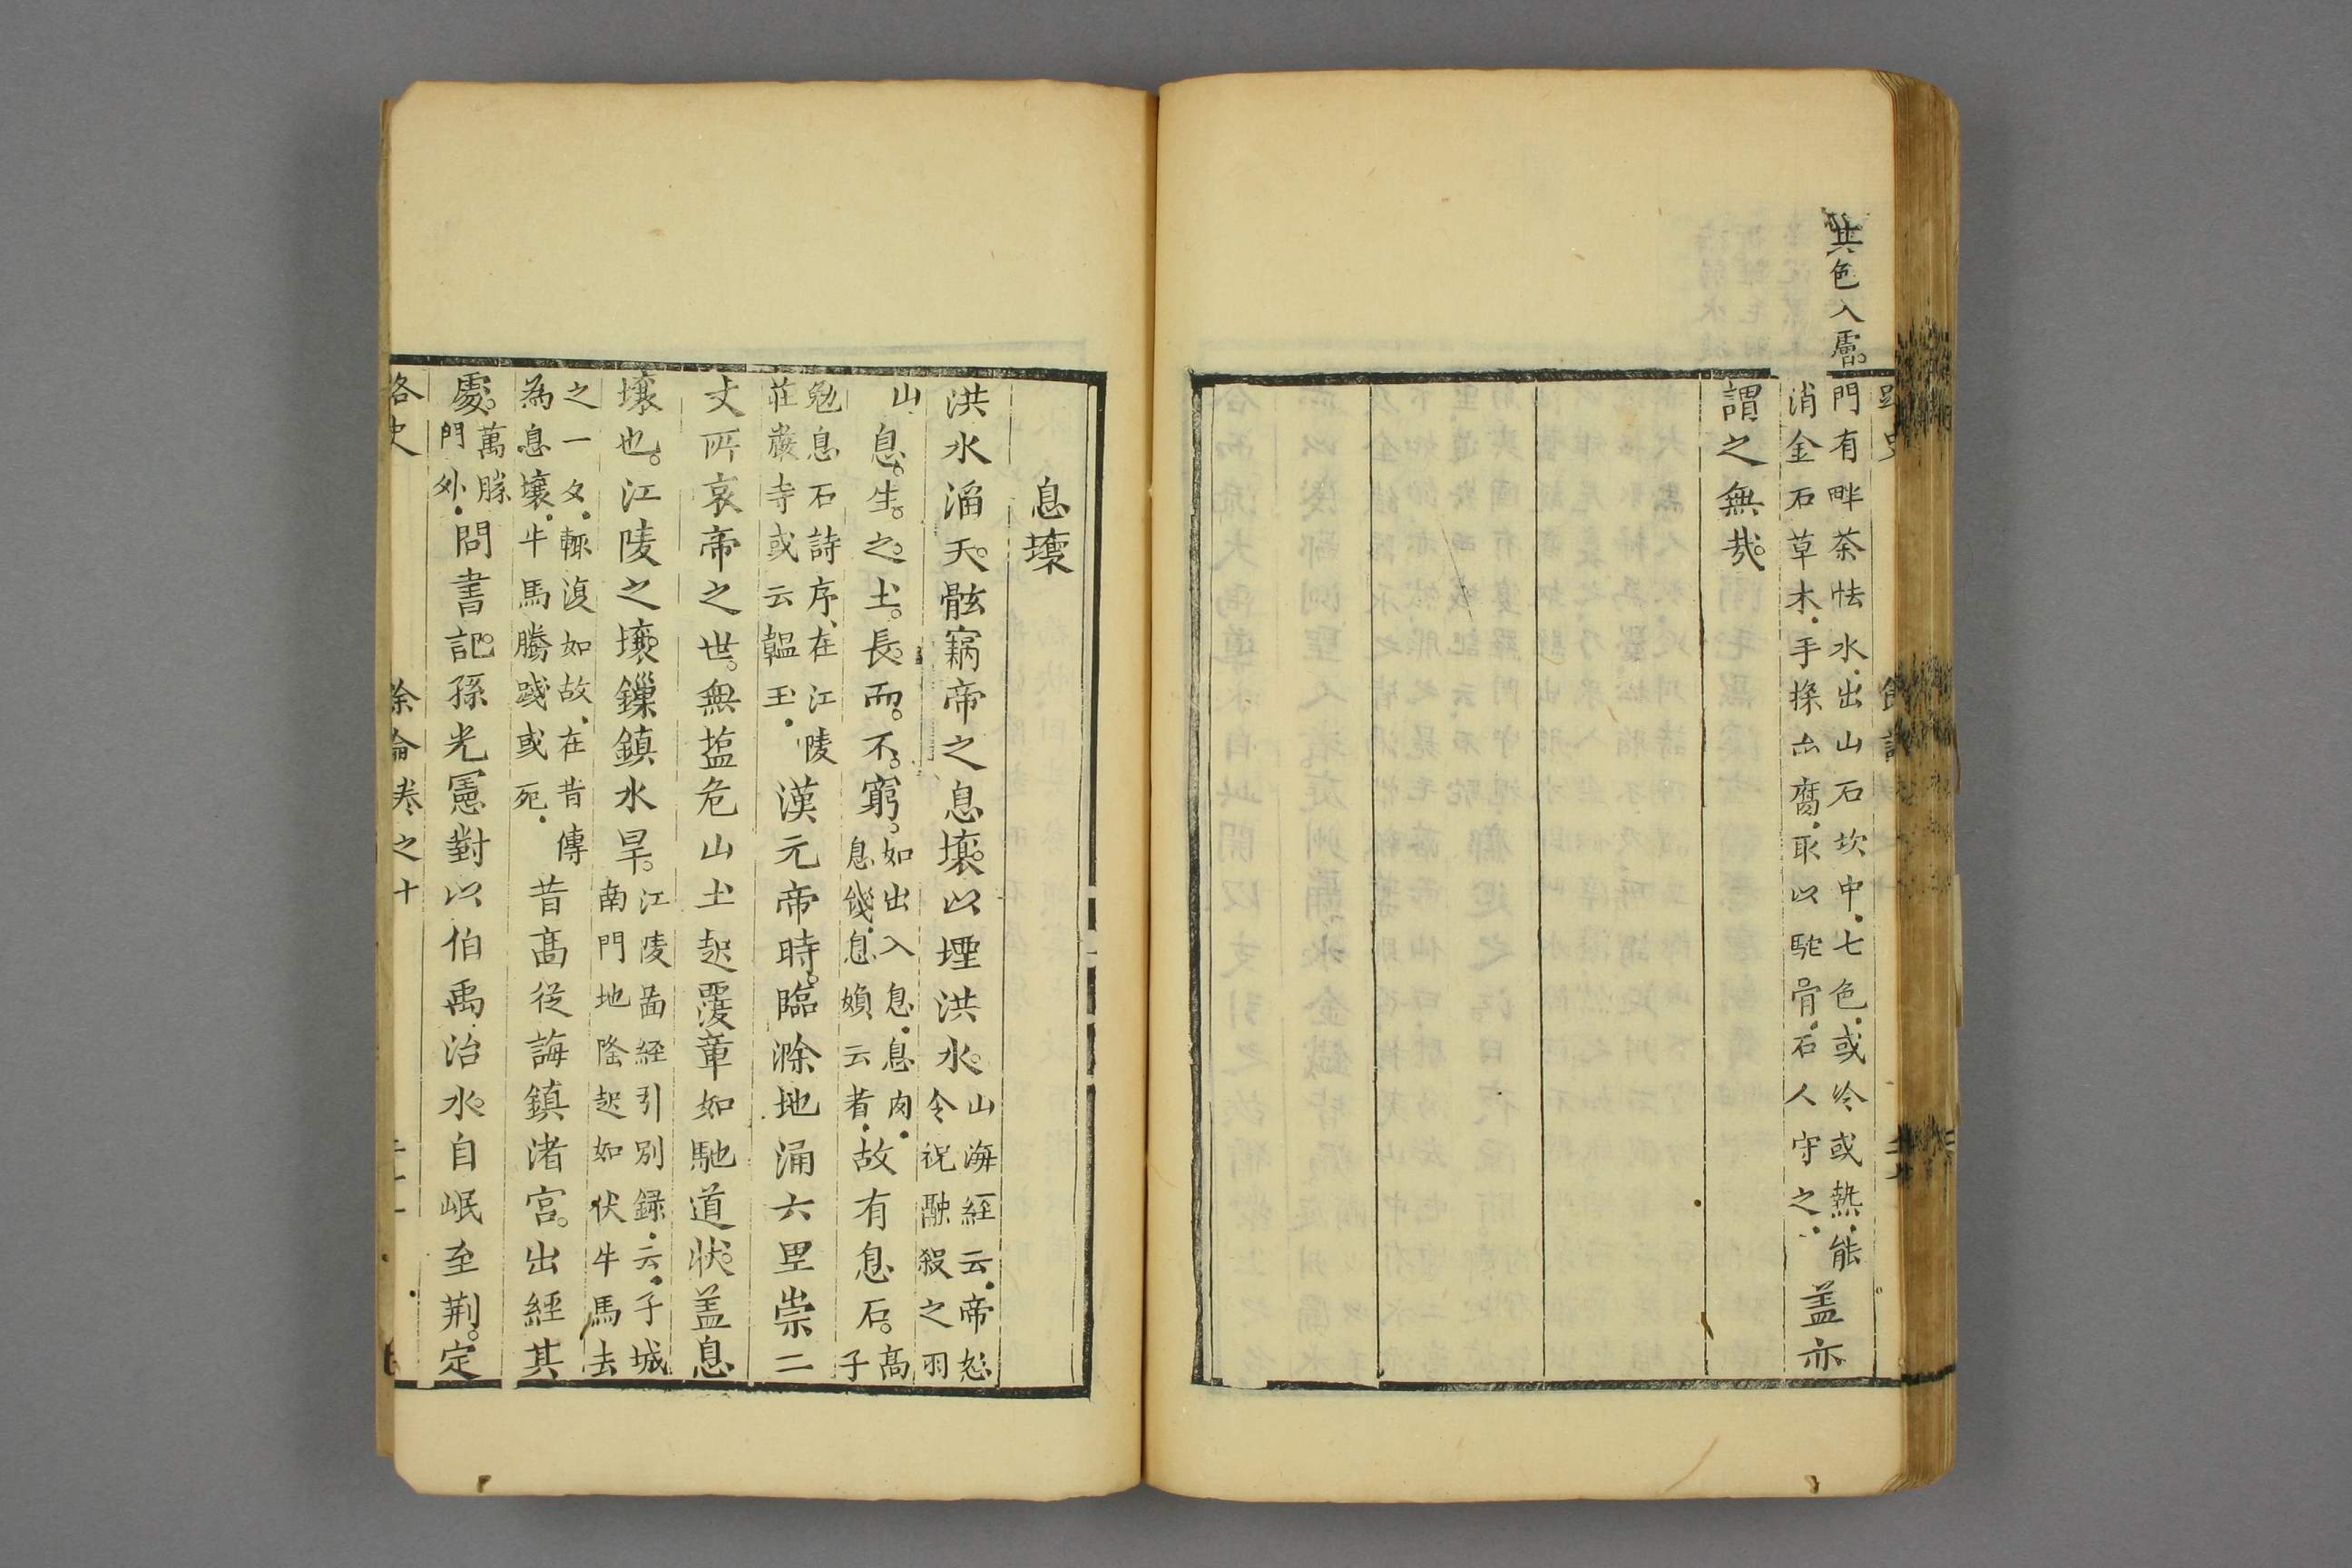 其色入膚
門有畔茶怯水出山石坎中七色或冷或熱能
消金石草木手探㐀腐取以駝骨石人守之
蓋亦
謂之無哉
息壤
洪水滔天骸竊帝之息壤以堙洪水
山海經云帝怒
令祝融殺之羽
山
息生之土長而不窮
如出入息息肉
息錢息嬪云者
故有息石
高
子
勉息石詩序在江陵
莊嚴寺或云韞玉
漢元帝時臨滁地涌六里崇二
丈所哀帝之世無塩危山土起覆草如馳道狀蓋息
壤也江陵之壤鏁鎮水旱
江陵啚經引別録云子城
南門地隆起如伏牛馬去
之一夕輒復如故在昔傳
為息壤牛馬騰踐或死
昔高從誨鎮渚宮出經其
處
萬勝
門外
問書記孫光憲對以伯禹治水自岷至荆定
路史
餘論卷之十